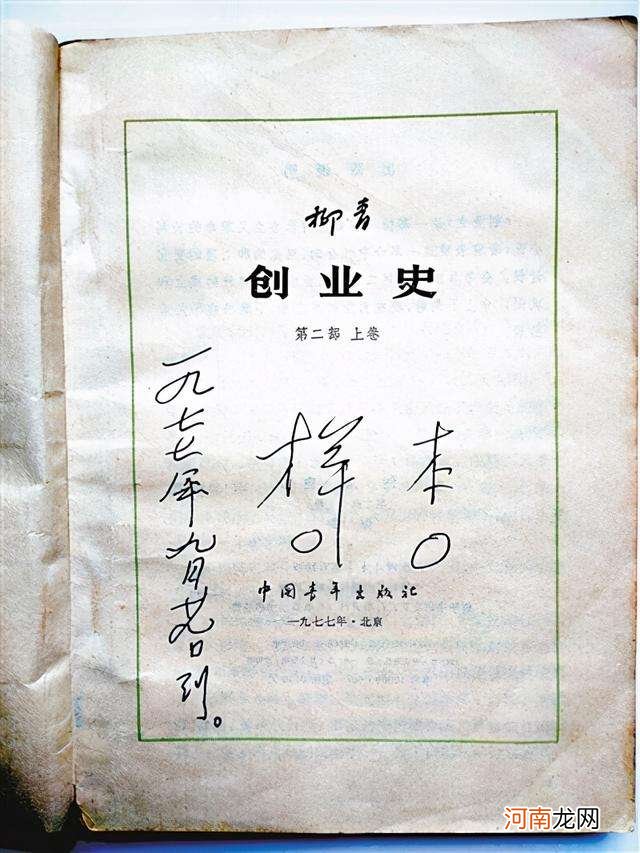 柳青
创业史
第二部 上卷
一九七七年九月廿九日到。
样本
中国青年出版社
一九七七年·北京
河南龙网